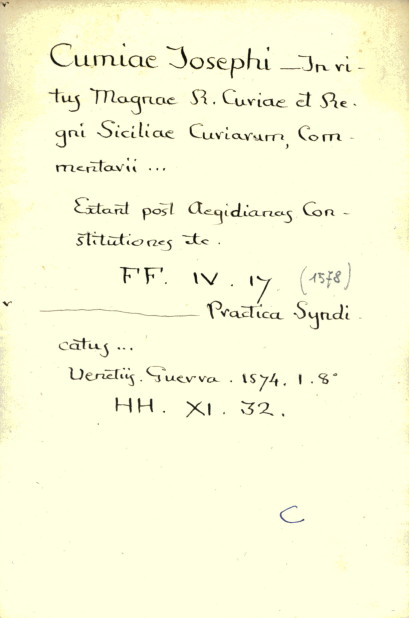 Cumiae Josephi — In ri-
tus Magnae R. Curiae et Re-
gni Siciliae Curiarum, Com-
mentarii ...
Extant post Aegidianas Con-
stitutiones etc.
FF. IV. 17 (1578)
———— Practica Syndi
catus ...
Venetiis. Guerra. 1574. 1. 8°
HH. XI. 32.
C